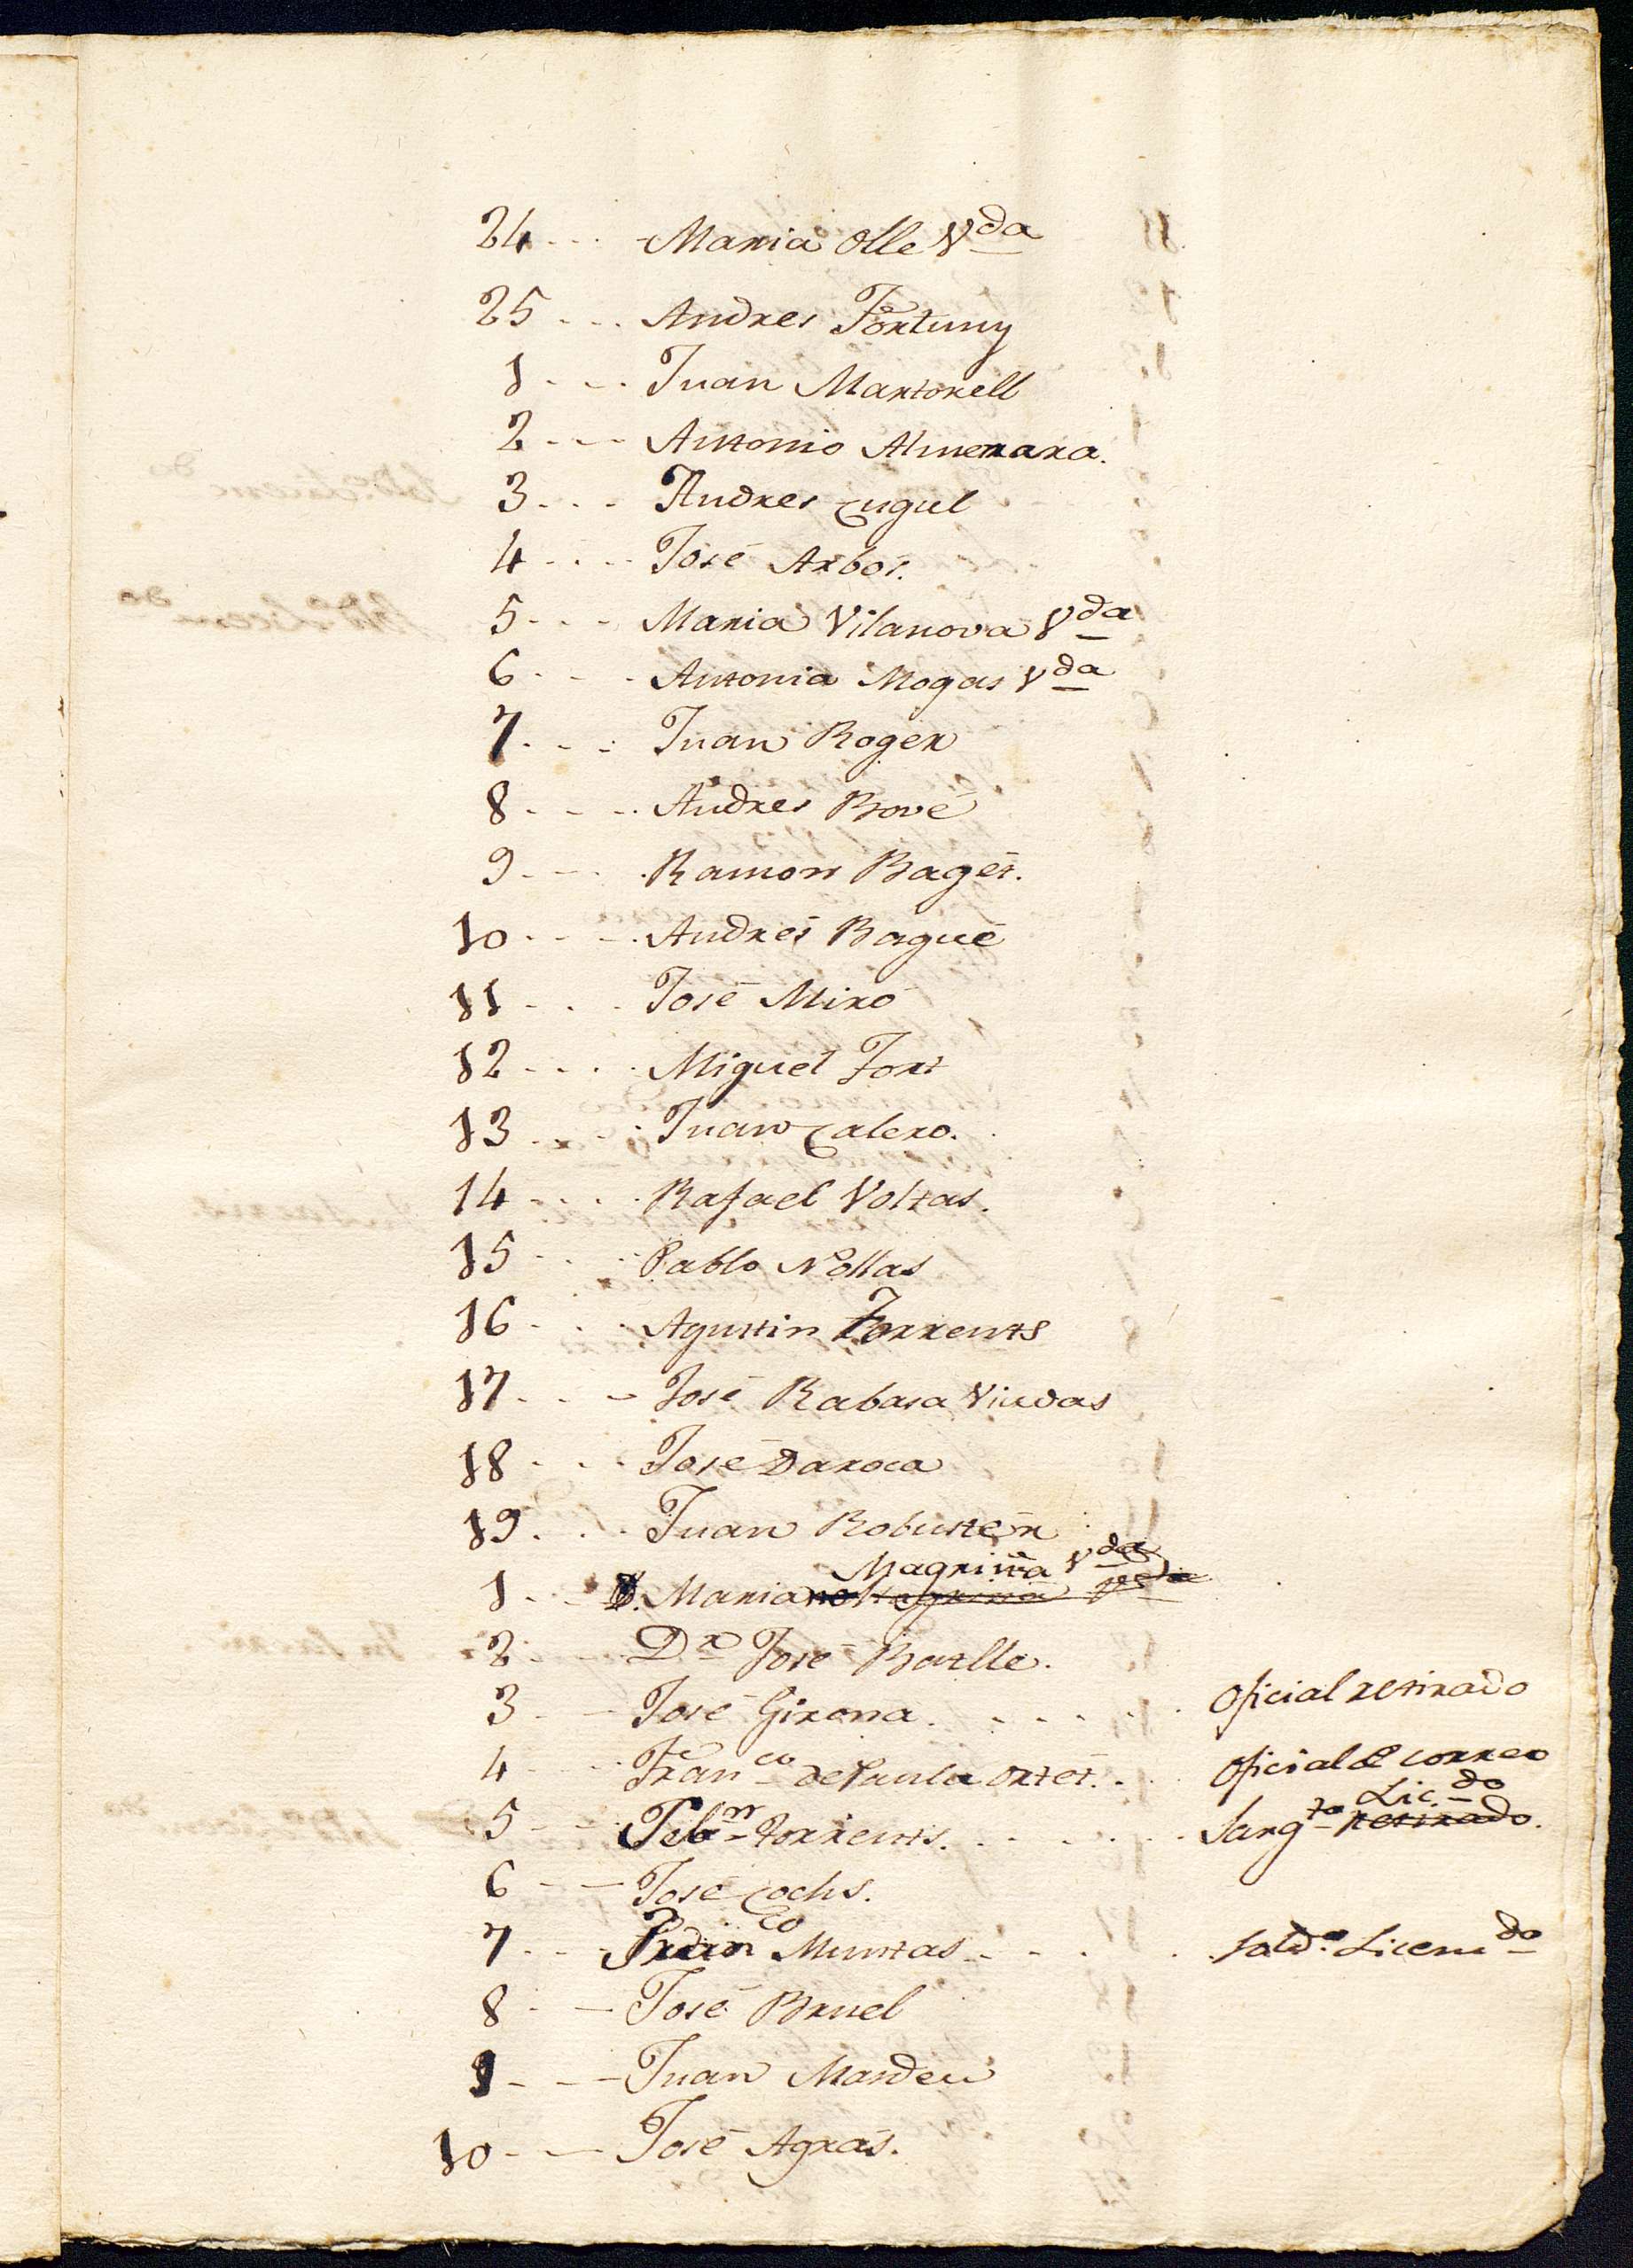 24 - - - Maria Olle V.da
25 - - - Andres Fortuny
1 - - - Juan Martorell
2 - - - Antonio Almenara.
3 - - - Andres Cugul
4 - - - José Arbós.
5 - - - Maria Vilanova V.da
6 - - - Antonia Mogas V.da
7 - - - Juan Roger
8 - - - Andres Bové
9 - - - Ramon Baget.
10 - - - Andrés Bagué
11 - - - José Miró
12 - - - Miguel Fort
13 - - - Juan Calero.
14 - - - Rafael Voltas.
15 - - - Pablo Nollas
16 - - - Agustin Torrents
17 - - - José Rabasa Viudas
18 - - - José Daroca
19 - - - Juan Robuster
1 - - - Maria Magriñá V.da
2 - - - D.r José Batlle.
3 - - José Girona. - - - - - Oficial retirado
4 - - - Fran.co de Paula Ortet. - - Oficial de correo
5 - - Seb.n Torrents. - - - - - Sarg.to retirado. Lic.do
6 - - José Cochs.
7 - - - Muntas - - - - Sold.o Licen.do
8 - - José Bruel
9 - - - Juan Mardeu
10 - - José Agrás.